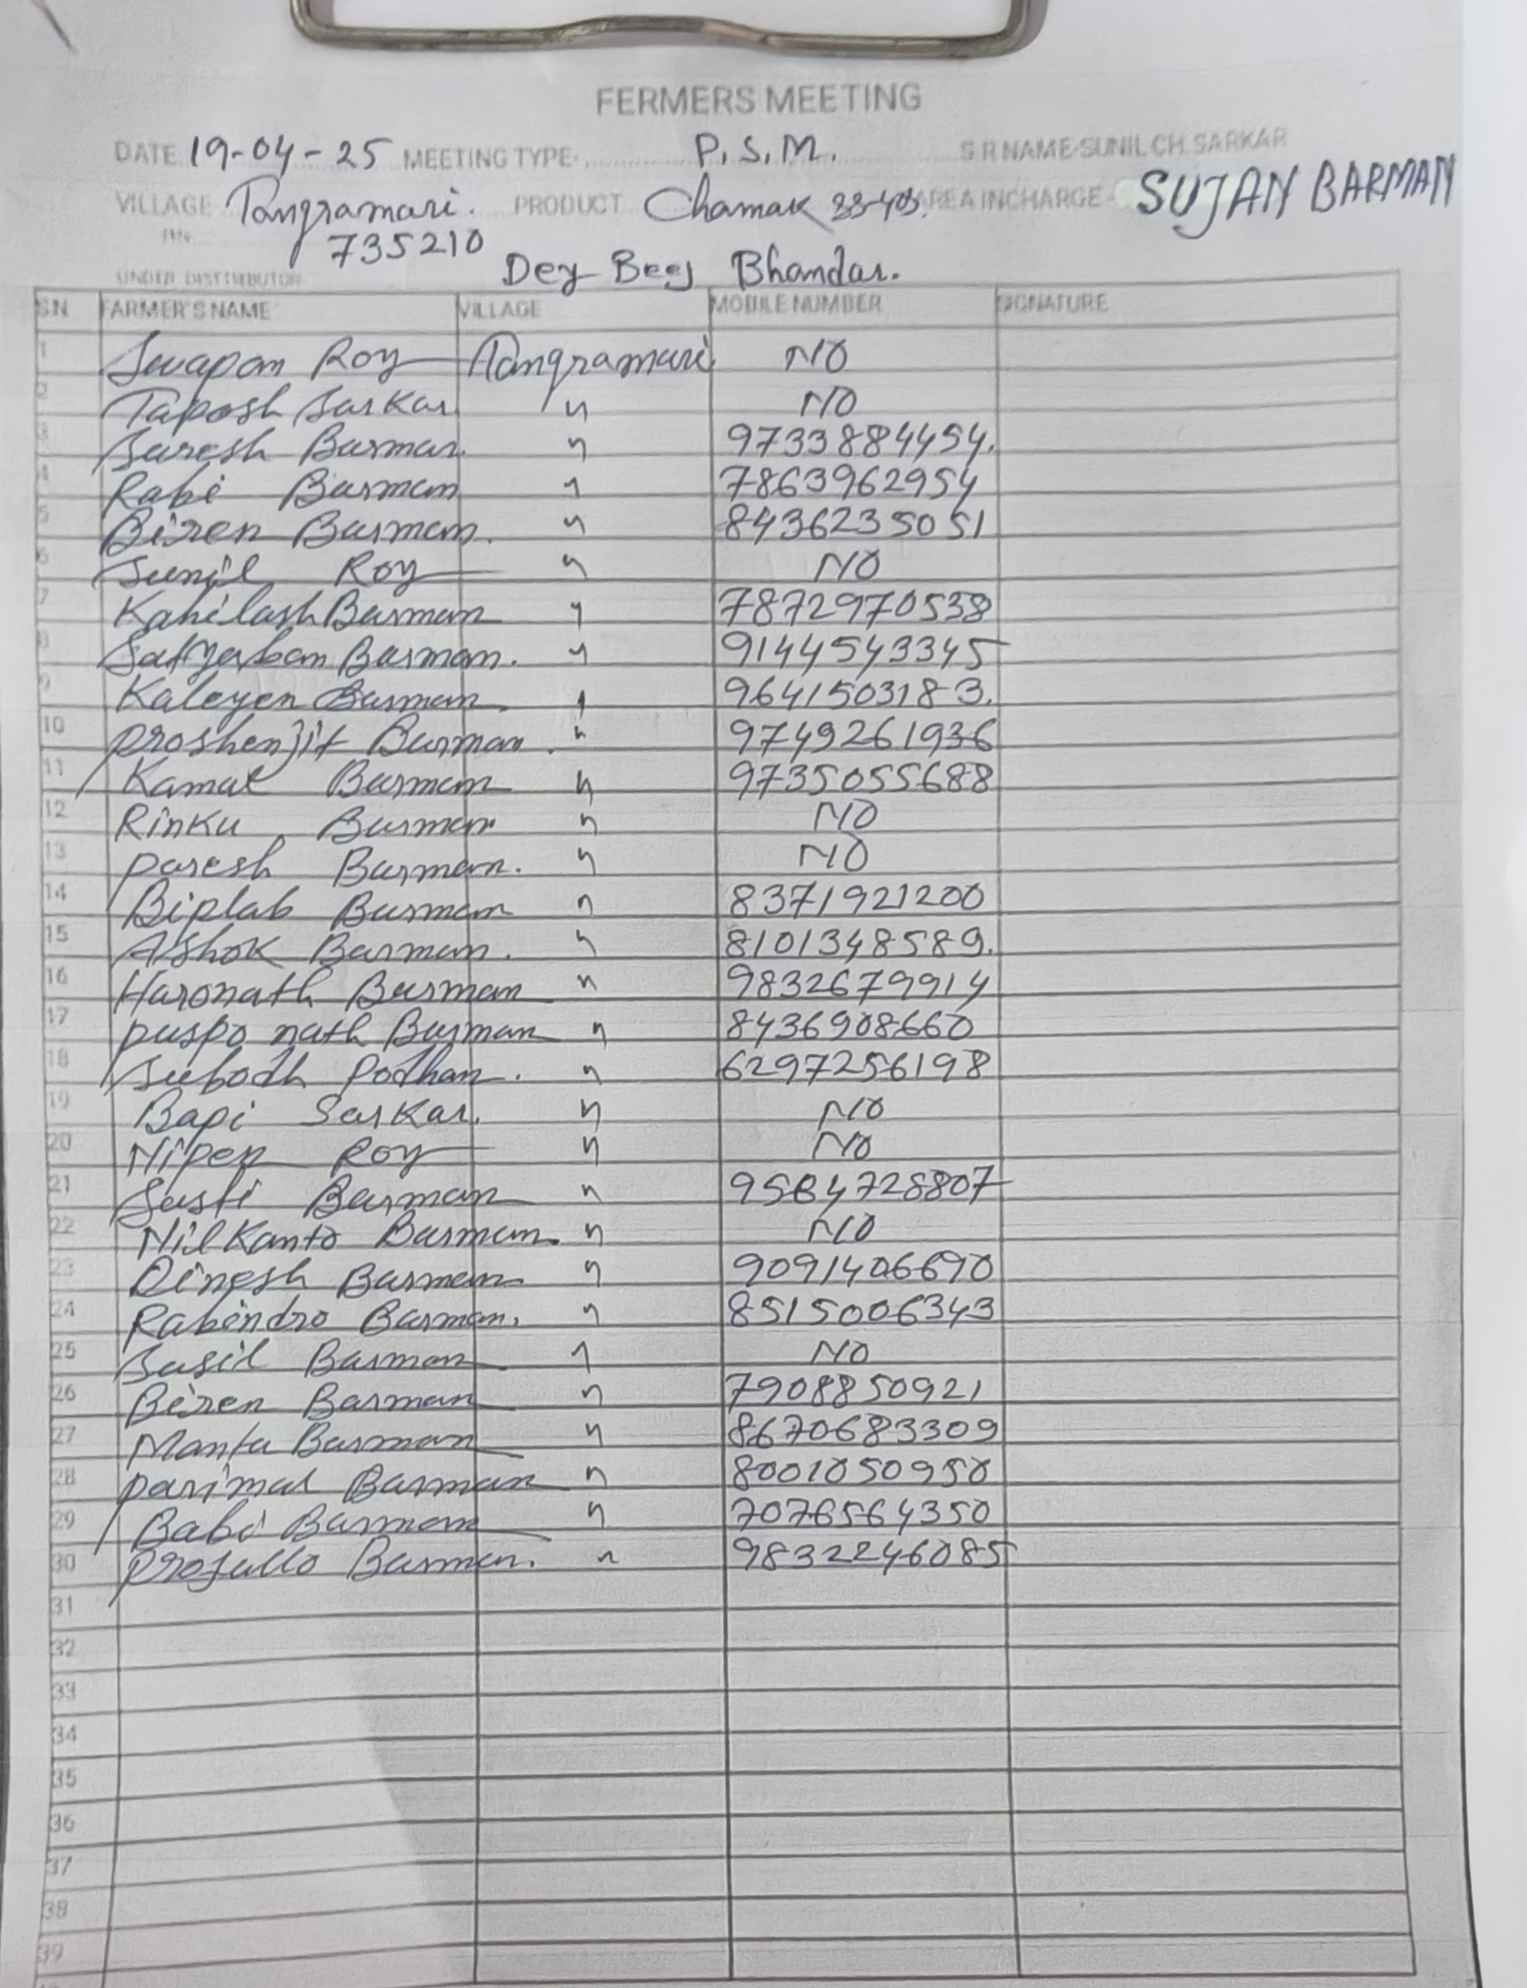 FERMERS MEETING
DATE 19-04-25 MEETING TYPE P.S.M. S R NAME-SUNIL CH. SARKAR
VILLAGE Tangramari. PRODUCT Chamak AREA INCHARGE- SUJAN BARMAN
PIN 735210
UNDER DISTRIBUTOR Dey Beej Bhandar.
SN FARMER'S NAME VILLAGE MOBILE NUMBER SIGNATURE
1 Swapan Roy Tangramari NO
2 Taposh Sarkar " NO
3 Suresh Barman. " 9733884454.
4 Rabi Barman " 7863962954
5 Biren Barman. " 8436235051
6 Sunil Roy " NO
7 Kahilash Barman " 7872970538
8 Satyerban Barman. " 9144543345
9 Kaleyen Barman. " 9641503183.
10 proshenjit Barman. " 9749261936
11 Kamal Barman " 9735055688
12 Rinku Barman " NO
13 paresh Barman. " NO
14 Biplab Barman " 8371921200
15 Ashok Barman. " 8101348589.
16 Haronath Barman " 9832679914
17 puspo nath Barman " 8436908660
18 Subodh Podhan. " 6297256198
19 Bapi Sarkar. " NO
20 Nipen Roy " NO
21 Susti Barman "
22 Nilkanto Barman. " NO
23 Dinesh Barman " 9091406690
24 Rabindro Barman. " 8515006343
25 Susil Barman " NO
26 Beren Barman " 7908850921
27 Mantu Barman " 8670683309
28 parimal Barman " 8001050950
29 Babi Barman " 7076564350
30 projullo Barman. " 9832246085
31
32
33
34
35
36
37
38
39